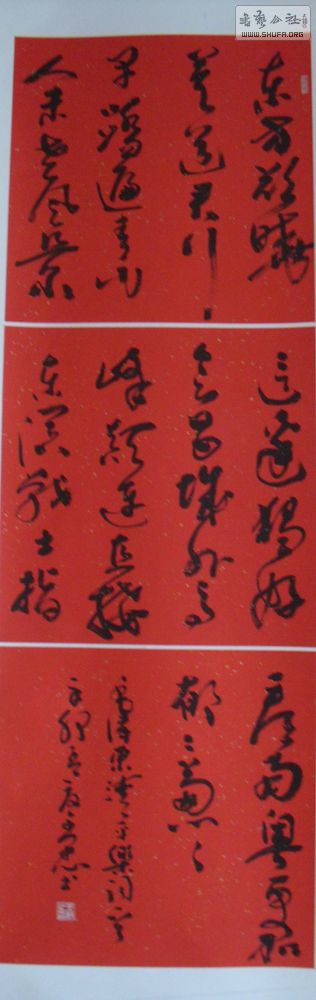 书艺公社
WWW.SHUFA.ORG
东方欲晓
莫道君行
早踏遍青山
人未老风景
这边独好
会昌城外高
峰颠连直接
东溟战士指
看南粤更加
郁々葱々
毛泽东清平樂词一首
辛卯
书